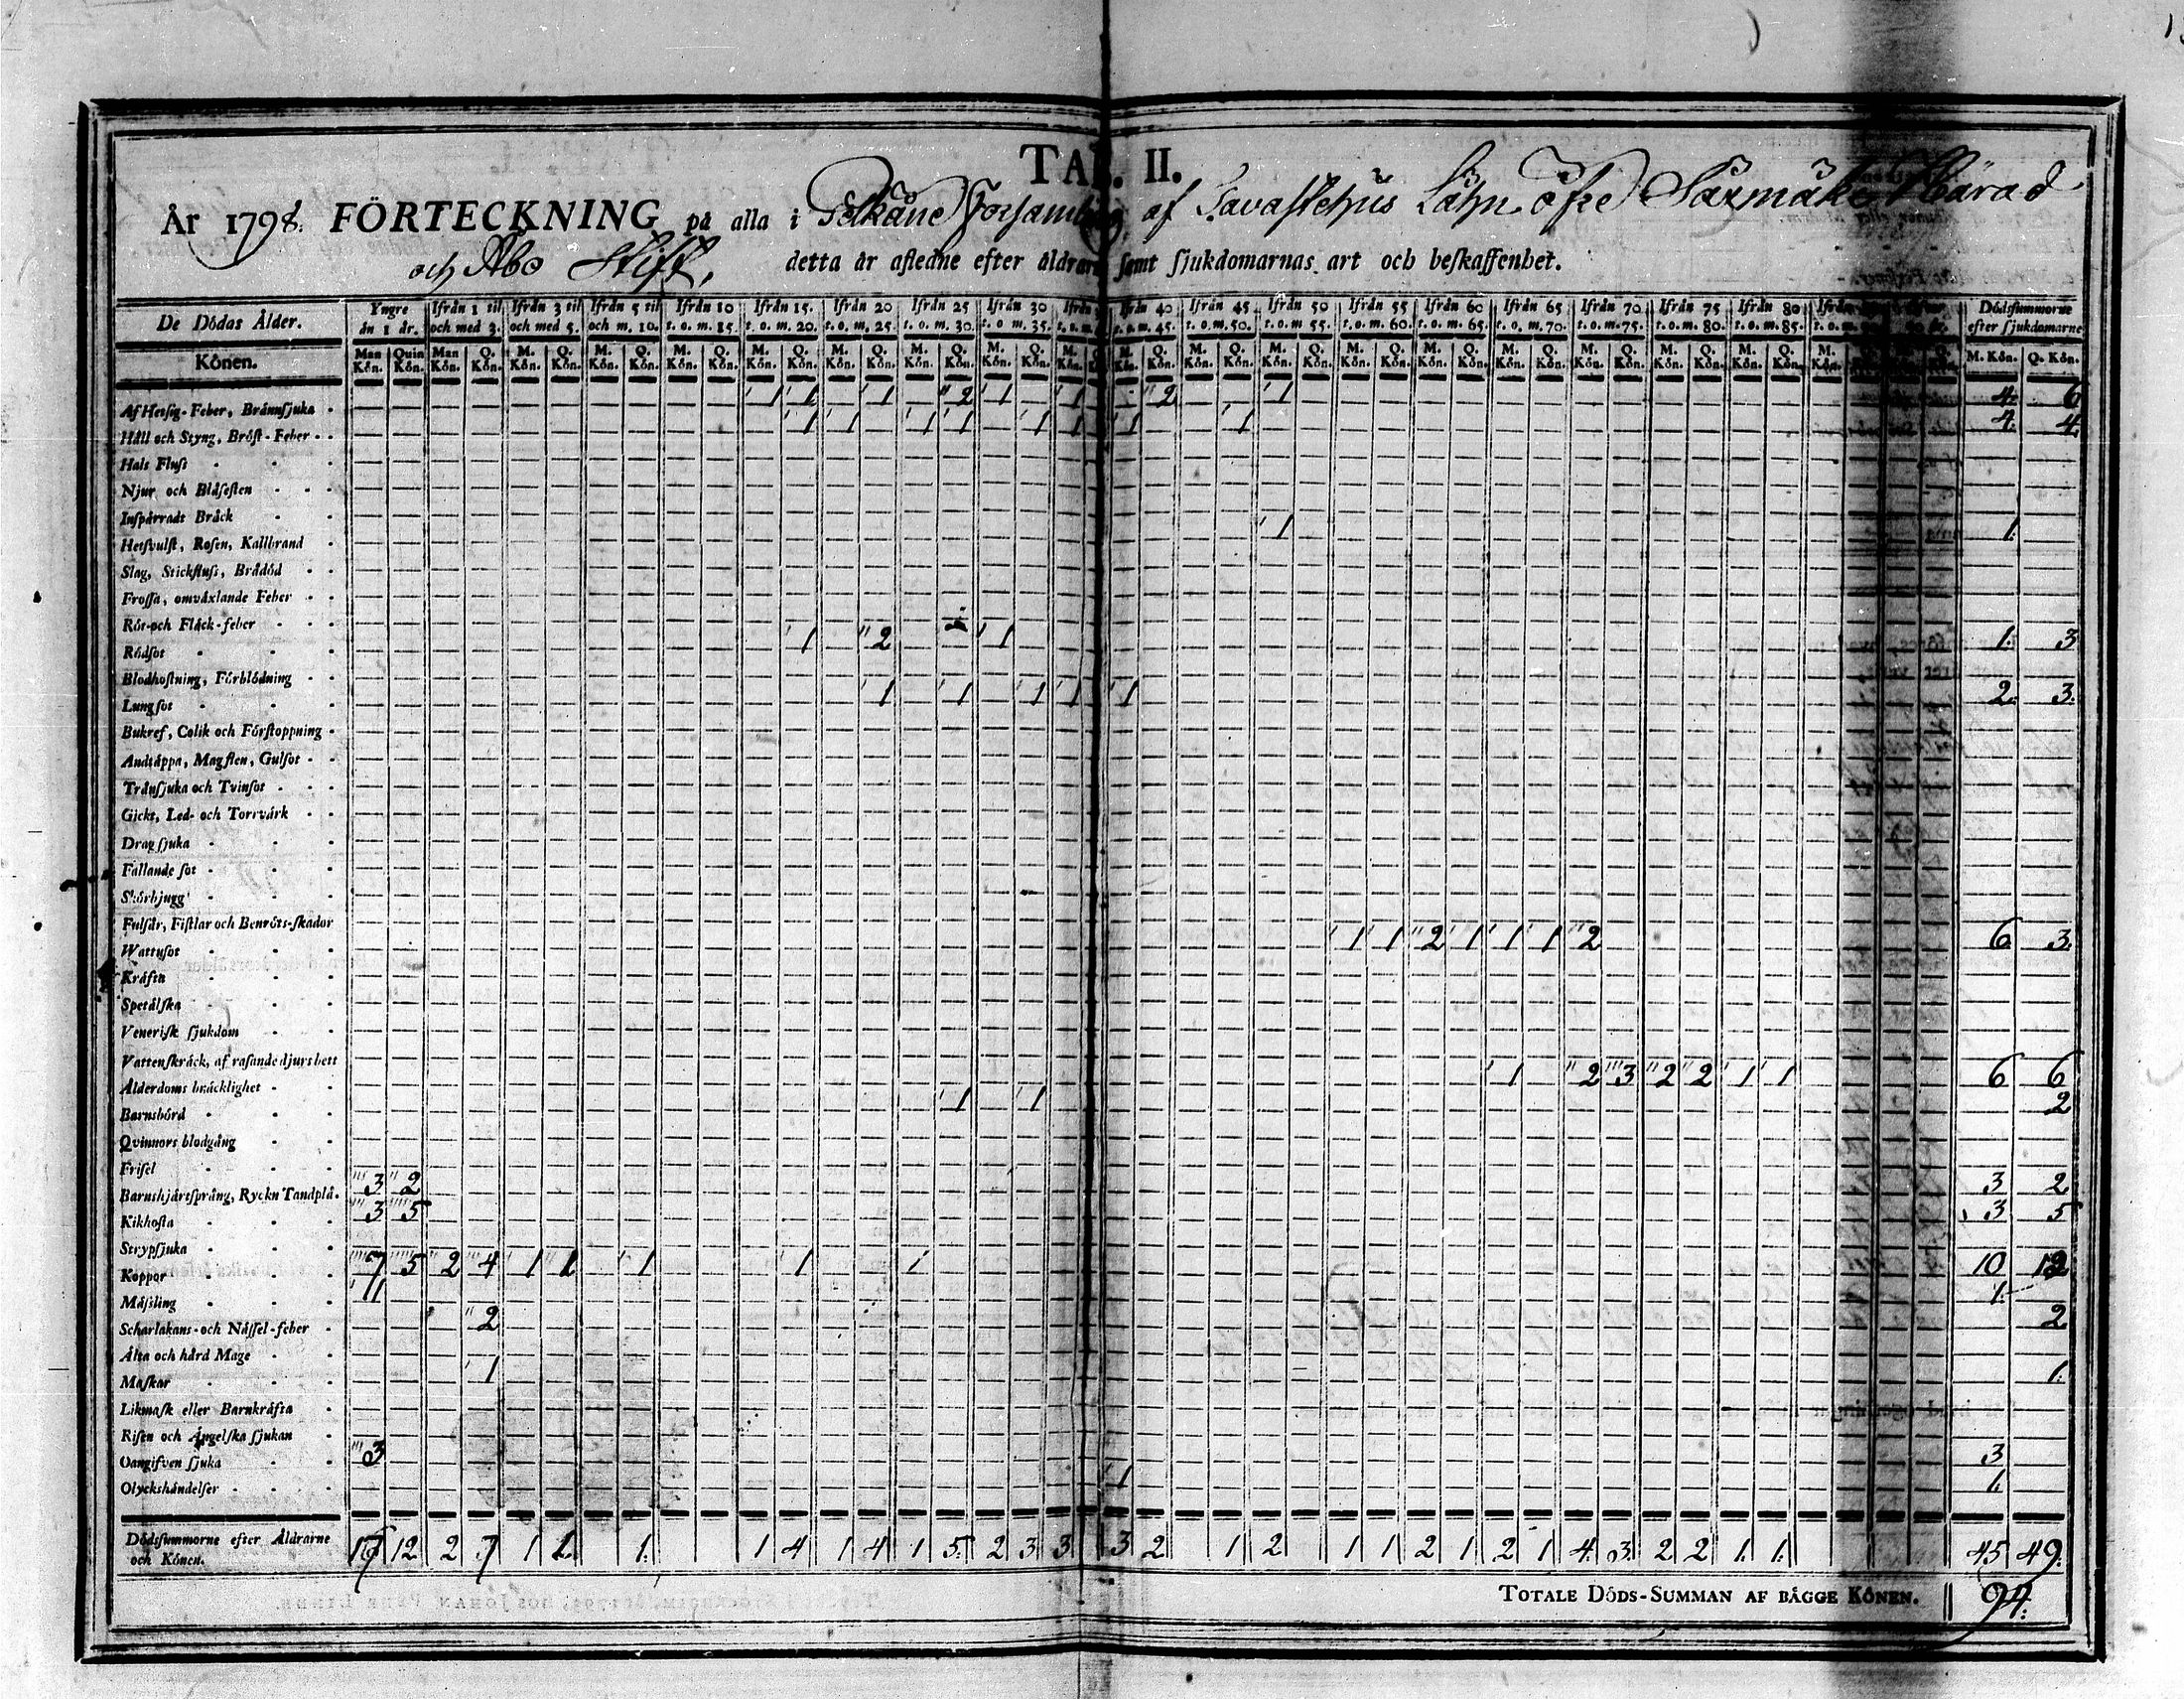 TAB. II.
År 1798. FÖRTECKNING på alla i Pelkäne Församling af Tavastehus Lähn öfre Saxmäke Härad
och Åbo Stift. detta år afledne efter åldrarne samt sjukdomarnas art och beskaffenhet.
De Dödas Ålder. Yngre än 1 år. Ifrån 1 til och med 3. Ifrån 3 til och med 5. Ifrån 5 til och m. 10. Ifrån 10 t. o. m. 15. Ifrån 15. t. o. m. 20. Ifrån 20 t. o. m. 25. Ifrån 25 t. o. m. 30. Ifrån 30 t. o m. 35. Ifrån 40 t. o. m. 45. Ifrån 45. t. o. m. 50. Ifrån 50 t. o. m. 55. Ifrån 55 t. o. m. 60. Ifrån 60 t. o. m. 65. Ifrån 65 t. o. m. 70. Ifrån 70 t. o. m. 75. Ifrån 75 t. o. m. 80. Ifrån 80 t. o. m. 85. Dödssummorne efter sjukdomarne
Könen. Man Kön. Quin Kön. Man Kön. Q. Kön. M. Kön. Q. Kön. M. Kön. Q. Kön. M. Kön. Q. Kön. M. Kön. Q. Kön. M. Kön. Q. Kön. M. Kön. Q. Kön. M. Kön. Q. Kön. M. Kön. M. Kön. Q. Kön. M. Kön. Q. Kön. M. Kön. Q. Kön. M. Kön. Q. Kön. M. Kön. Q. Kön. M. Kön. Q. Kön. M. Kön. Q. Kön. M. Kön. Q. Kön. M. Kön. Q. Kön. M. Kön. M. Kön. Q. Kön.
Af Hetsig-Feber, Brännsjuka 1 1 1 2 1 1 2 1 4. 6
Håll och Styng, Bröst-Feber 1 1 1 1 1 1 1 1 4. 4.
Hals Fluss
Njur och Blåsesten
Inspärradt Bråck
Hetsvulst, Rosen, Kallbrand 1 1.
Slag, Stickfluss, Brådöd
Frossa, omväxlande Feber
Röt-och Fläck-feber
Rödsot 1 2 1 1. 3
Blodhostning, Förblödning
Lungsot 1 1 1 1 1 2. 3.
Bukref, Colik och Förstoppning
Andtäppa, Magsten, Gulsot
Trånsjuka och Tvinsot
Gickt, Led- och Torrvärk
Dragsjuka
Fallande sot
Skörbjugg
Fulsår, Fistlar och Benröts-skador
Wattusot 1 1 2 1 1 1 2 6 3.
Kräfta
Spetälska
Venerisk sjukdom
Vattenskräck, af rasande djurs bett
Ålderdoms bräcklighet 1 2 3 2 2 1 1 6 6
Barnsbörd 1 1 2
Qvinnors blodgång
Frisel
Barnshjärtsprång, Ryckn Tandplå. 3 2 3 2
Kikhosta 3 5 3 5
Strypsjuka
Koppor 7 5 2 4 1 1 1 1 1 10 12
Mässling 1 1.
Scharlakans-och Nässel-feber 2 2
Älta och hård Mage
Maskar 1 1.
Likmask eller Barnkräfta
Risen och Ängelska sjukan
Oangifven sjuka 3 3
Olyckshändelser 1 1.
Dödssummorne efter Åldrarne och Könen. 17 12 2 7 1 1 1. 1 4 1 4 1 5. 2 3 3 3 2 1 2 1 1 2 1 2 1 4. 3. 2 2 1. 1. 45 49.
TOTALE DÖDS-SUMMAN AF BÄGGE KÖNEN. 94.